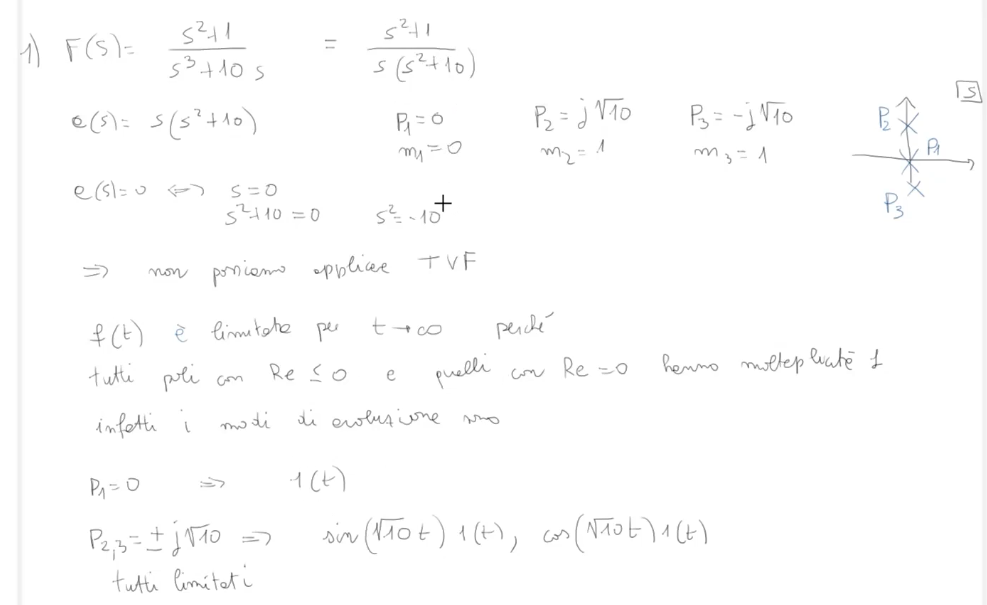 1) F(s)= s²+1 / s³+10 s = s²+1 / s(s²+10)
e(s)= s(s²+10) P₁=0 P₂= j√10 P₃= -j√10
m₁=0 m₂=1 m₃=1
e(s)=0 ⇔ s=0
s²+10=0 s²=-10
⇒ non possiamo applicare TVF
f(t) è limitata per t→∞ perché
tutti poli con Re ≤ 0 e quelli con Re=0 hanno molteplicità 1
infatti i modi di evoluzione sono
P₁=0 ⇒ 1(t)
P₂,₃=± j√10 ⇒ sin(√10 t) 1(t), cos(√10 t) 1(t)
tutti limitati
S
P₂
P₁
P₃